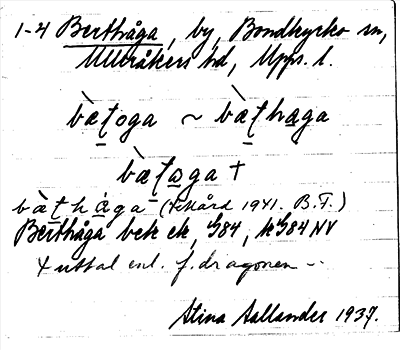 1-4 Berthåga, by, Bondkyrko sn,
Ulleråkers hd, Upps. l.
bætoga ~ bæthaga
bætaga +
bæthaga (1941. B.T.)
Berthåga bek ek, G84, hG84 NV
+ uttal enl. f. dragonen
Stina Sallander 1937.